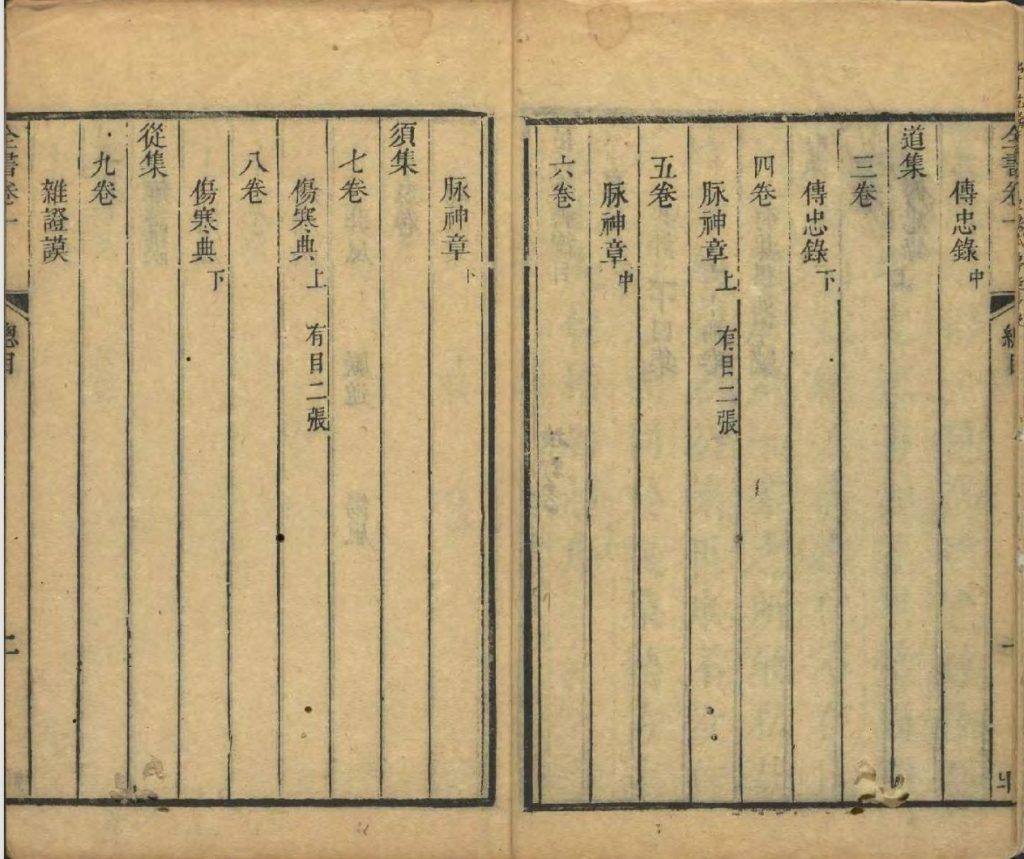 全書卷一 總目 一
傳忠錄中
道集
三卷
傳忠錄下
四卷
脉神章上 有目二張
五卷
脉神章中
六卷
脉神章下
須集
七卷
傷寒典上 有目二張
八卷
傷寒典下
從集
九卷
雜證謨
全書卷一 總目 二